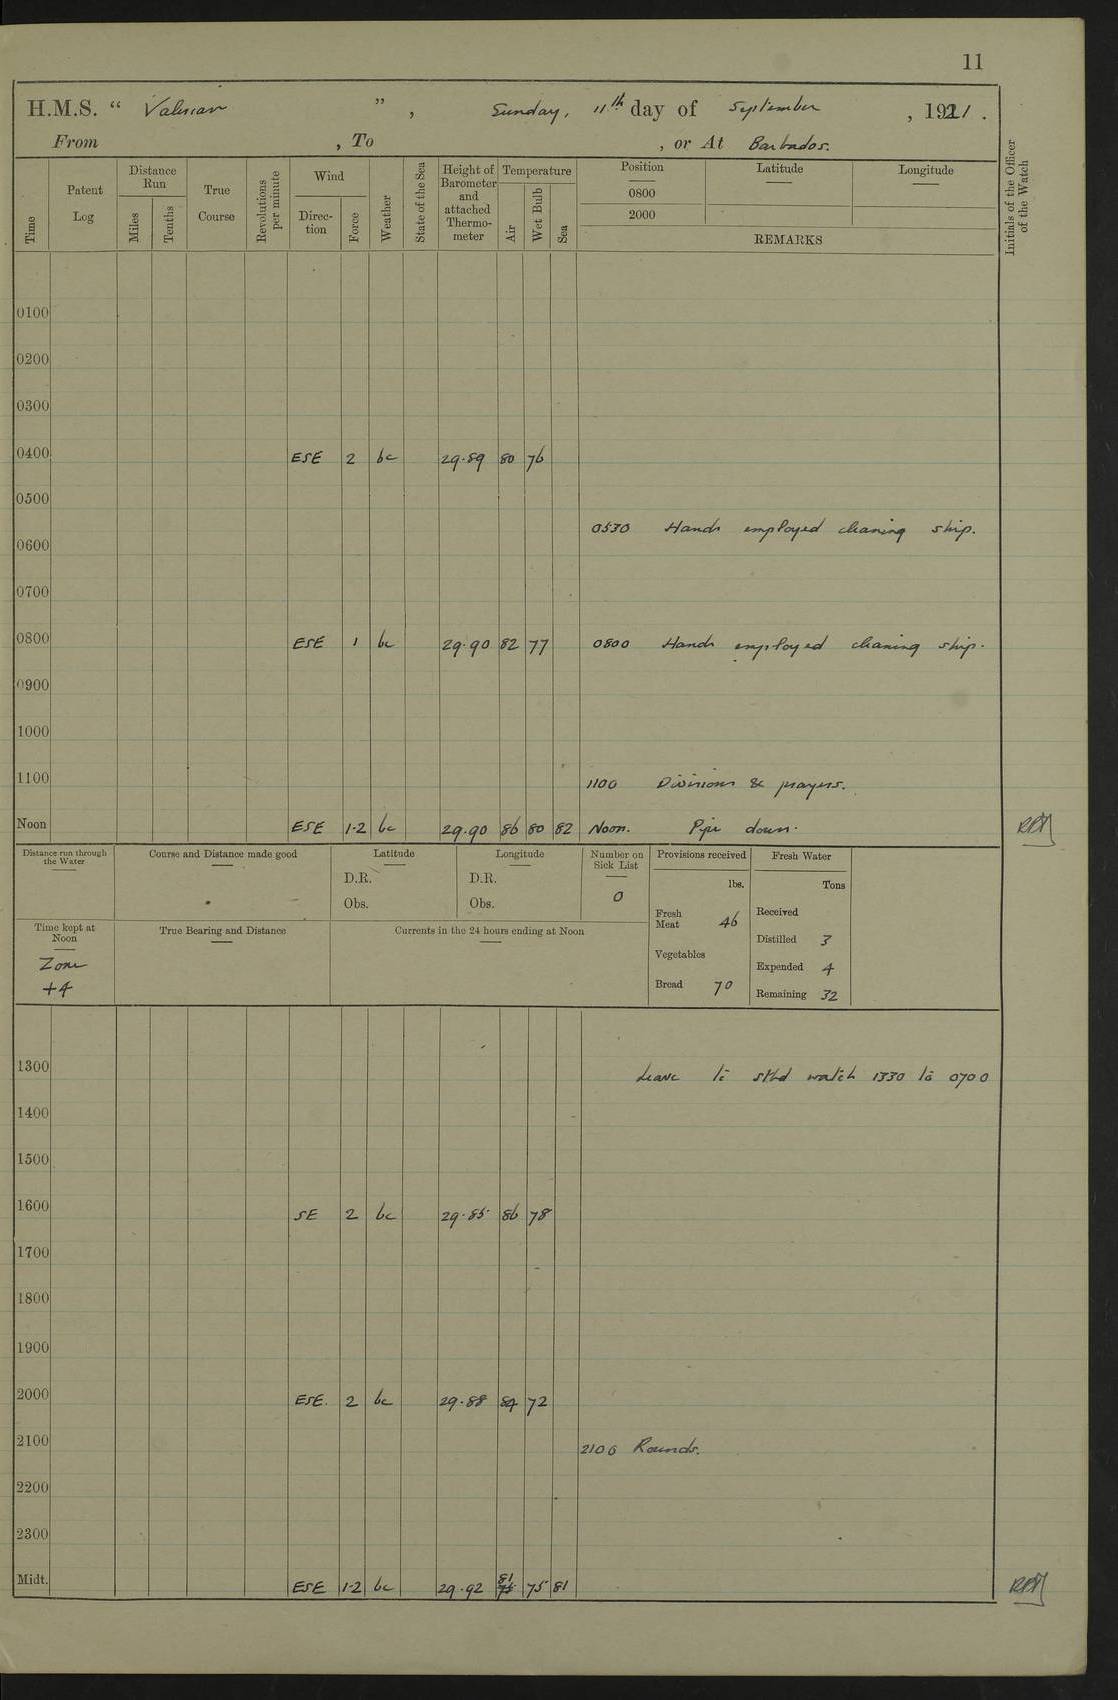 11
H.M.S. “ Valerian ” , Sunday, 11th day of September , 1921 .
From , To , or At Barbados.
Time
Patent Log
Distance Run
Miles
Tenths
True Course
Revolutions per minute
Wind
Direc-tion
Force
Weather
State of the Sea
Height of Barometer and attached Thermo-meter
Temperature
Air
Wet Bulb
Sea
Position
0800
2000
Latitude
Longitude
REMARKS
Initials of the Officer of the Watch
0100
0200
0300
0400 ESE 2 bc 29.89 80 76
0500
0530 Hands employed cleaning ship.
0600
0700
0800 ESE 1 bc 29.90 82 77 0800 Hands employed cleaning ship.
0900
1000
1100 1100 Divisions & prayers.
Noon ESE 1-2 bc 29.90 86 80 82 Noon. Pipe down.
Distance run through the Water
Course and Distance made good
Latitude
D.R.
Obs.
Longitude
D.R.
Obs.
Number on Sick List
0
Provisions received
lbs.
Fresh Meat 46
Vegetables
Bread 70
Fresh Water
Tons
Received
Distilled 3
Expended 4
Remaining 32
Time kept at Noon
Zone
+4
True Bearing and Distance
Currents in the 24 hours ending at Noon
1300 Leave to stbd watch 1330 to 0700
1400
1500
1600 SE 2 bc 29.85 86 78
1700
1800
1900
2000 ESE. 2 bc 29.88 84 72
2100 2100 Rounds.
2200
2300
81
Midt. ESE 1-2 bc 29.92 75 75 81